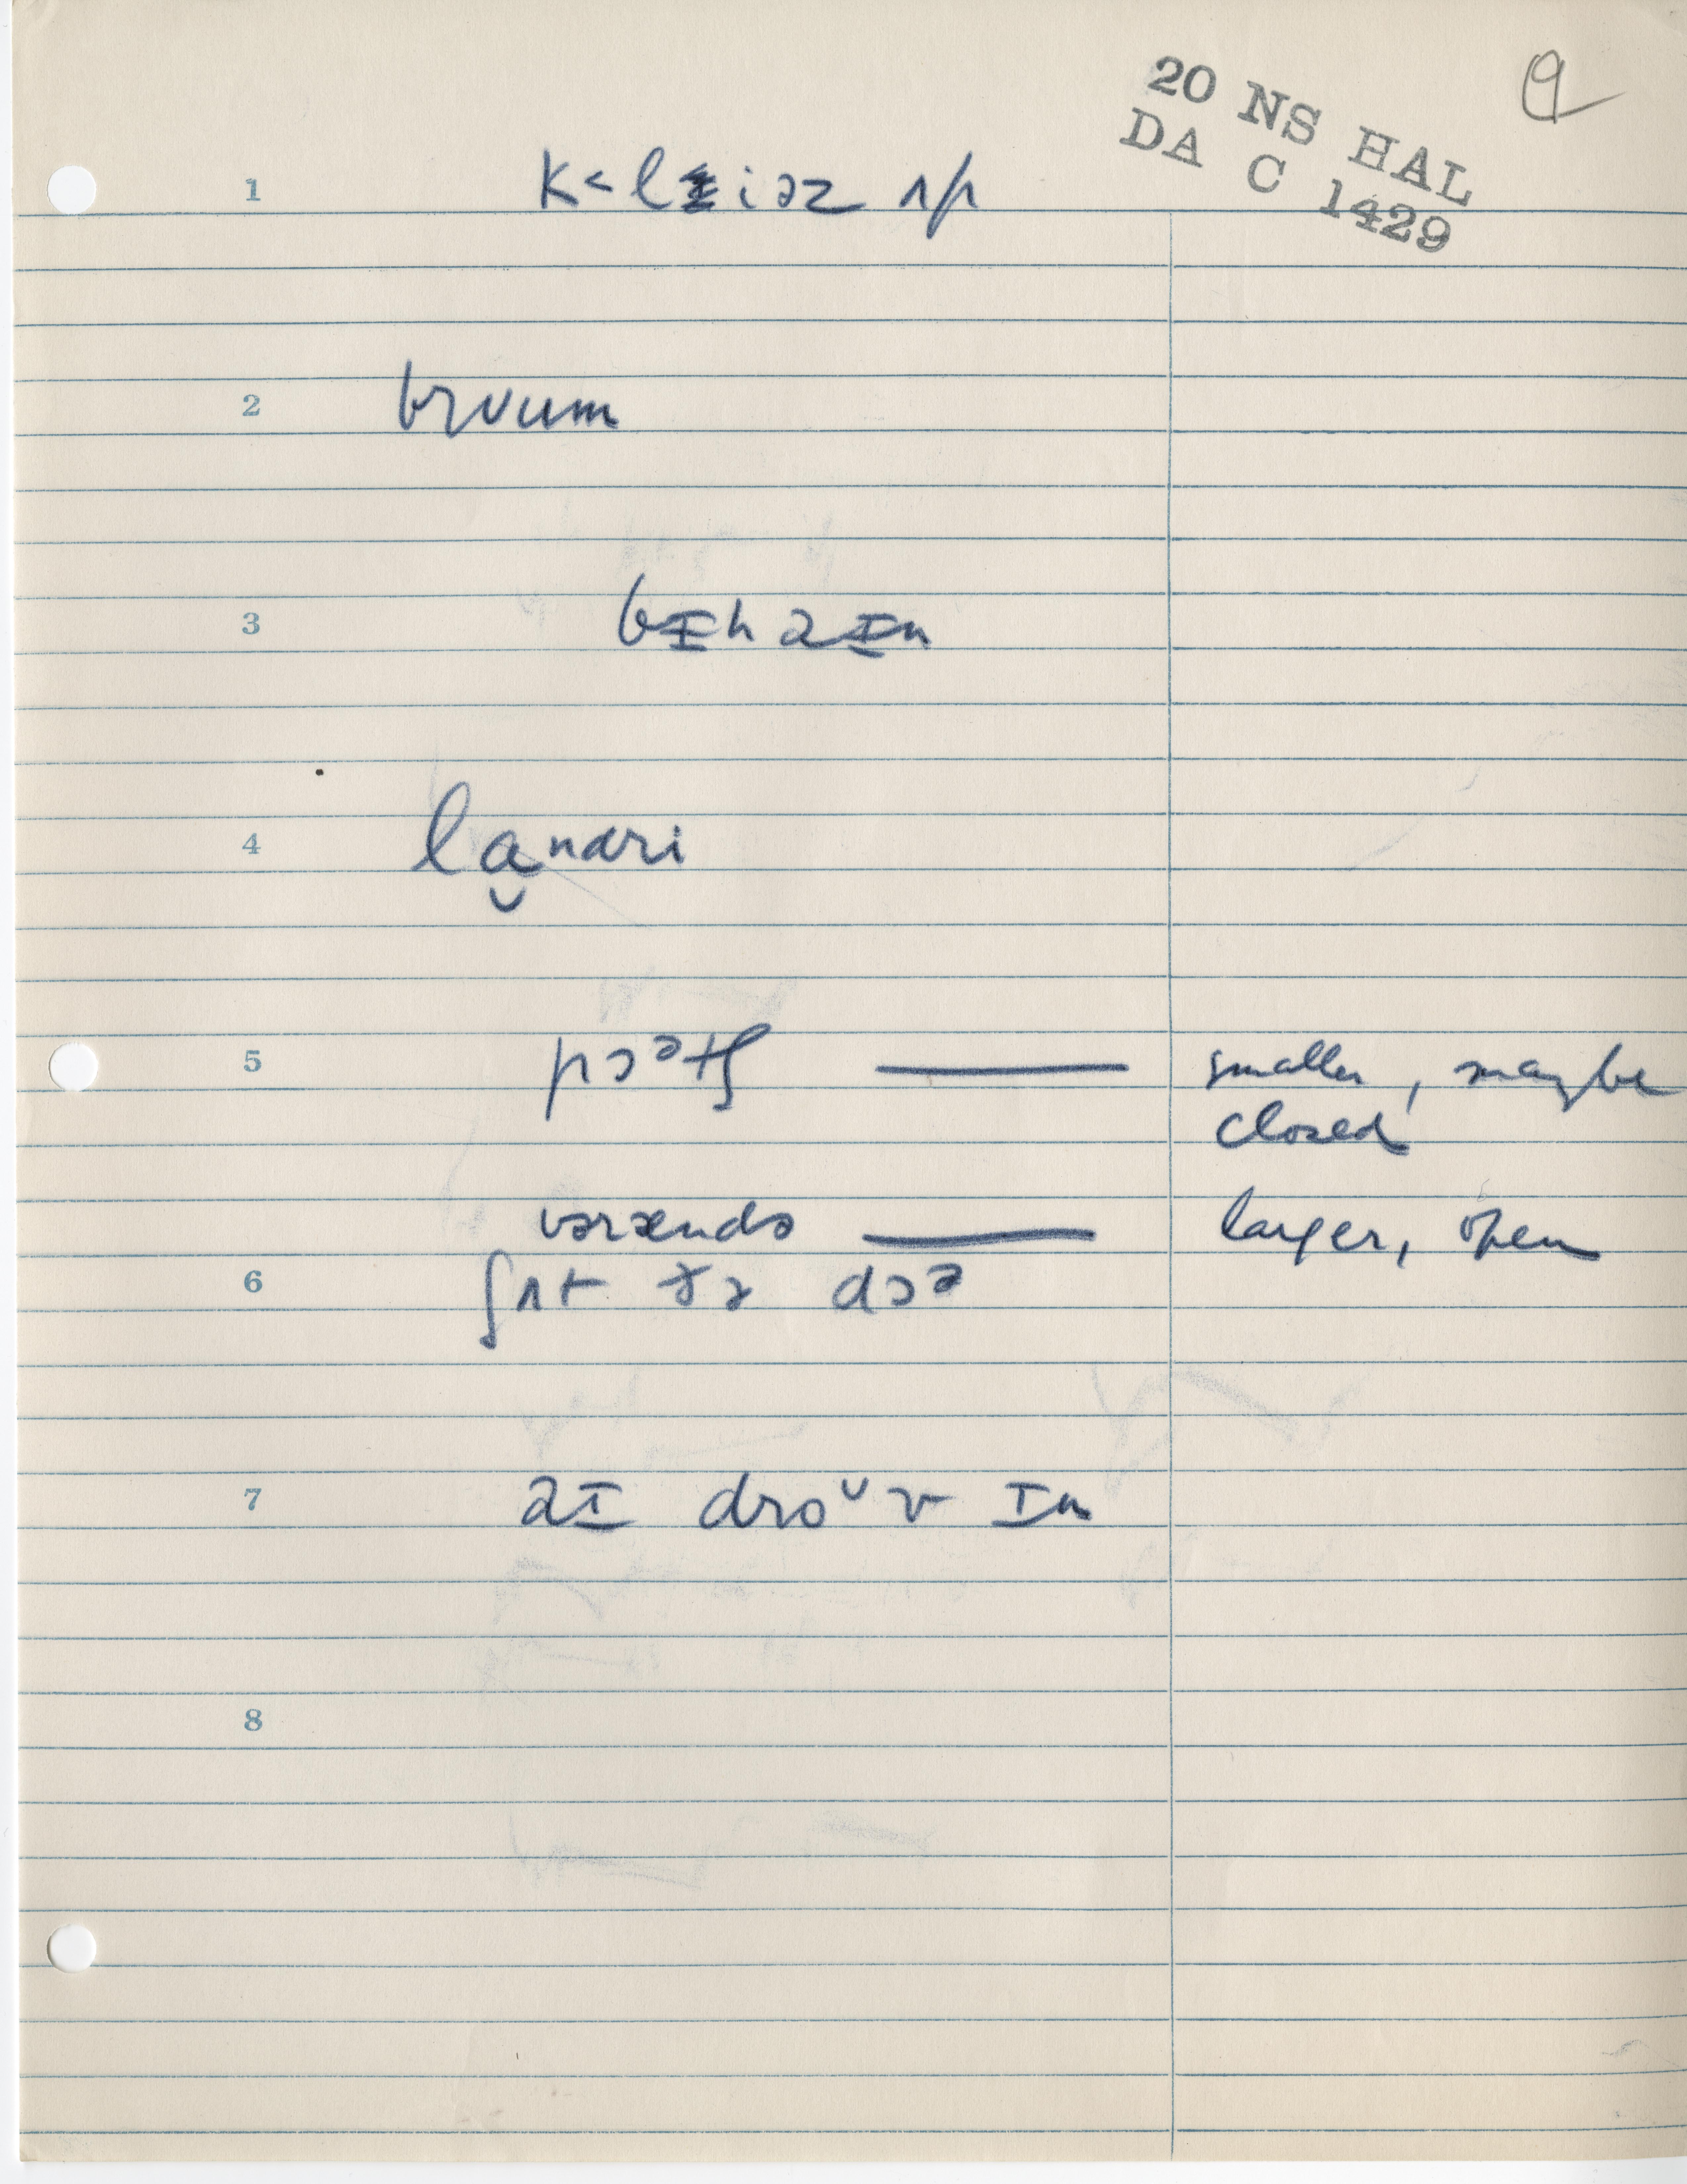 20 NS HAL
DA C 1429
9
1 k<liəz ʌp
2 brʊum
3 bɪhaɪn
4 la̮nəri
5 pɔᵊtʃ — smaller, maybe
closed
vərændə — larger, open
6 ʃʌt ðə dɔᵊ
7 aɪ droᶷv ɪn
8